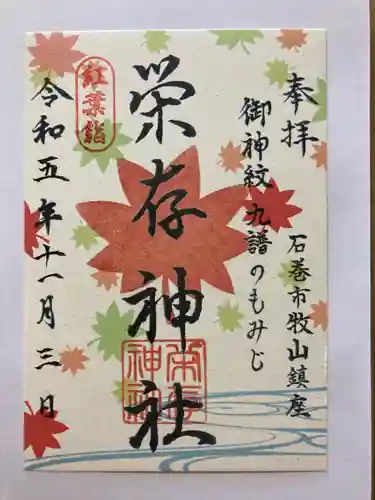 奉拝
御神紋 九譜のもみじ
石巻市牧山鎮座
栄存神社
栄存神社
紅葉詣
令和五年十一月三日